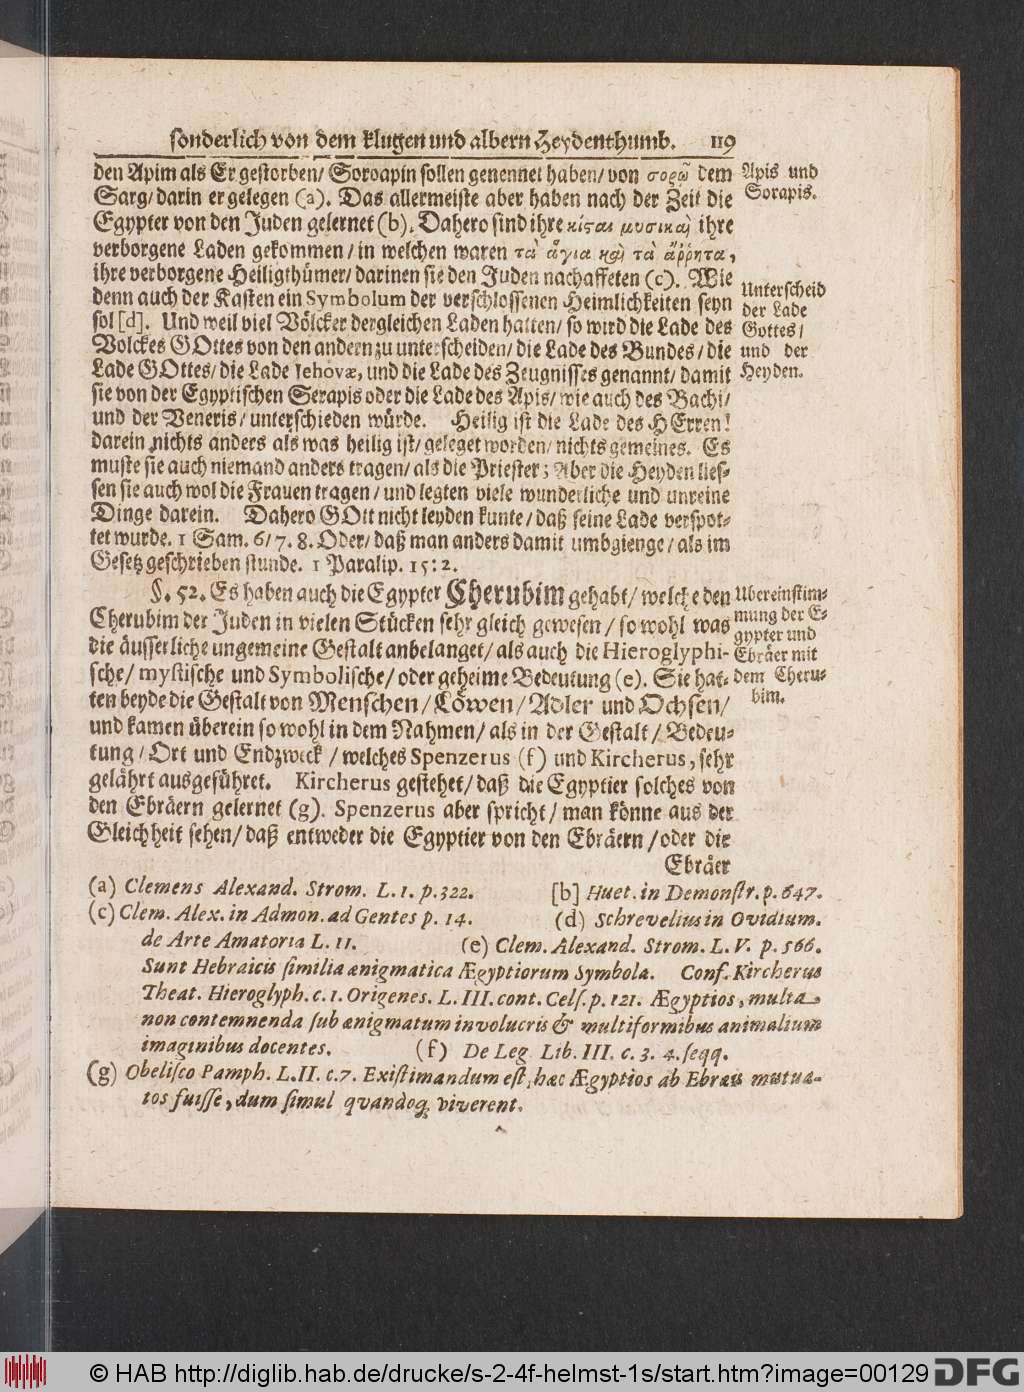 sonderlich von dem klugen und albern Heydenthumb. 119
den Apim als Er gestorben/ Soroapin sollen genennet haben/ von σορῶ dem
Sarg/ darin er gelegen (a). Das allermeiste aber haben nach der Zeit die
Egypter von den Juden gelernet (b). Dahero sind ihre κίςαι μυσικαὶ ihre
verborgene Laden gekommen/ in welchen waren τὰ ἅγια καὶ τὰ ἄῤῥητα,
ihre verborgene Heiligthümer/ darinen sie den Juden nachaffeten (c). Wie
denn auch der Kasten ein Symbolum der verschlossenen Heimlichkeiten seyn
sol [d]. Und weil viel Völcker dergleichen Laden hatten/ so wird die Lade des
Volckes GOttes von den andern zu unterscheiden/ die Lade des Bundes/ die
Lade GOttes/ die Lade Iehovæ, und die Lade des Zeugnisses genannt/ damit
sie von der Egyptischen Serapis oder die Lade des Apis/ wie auch des Bachi/
und der Veneris/ unterschieden würde. Heilig ist die Lade des HErren!
darein nichts anders als was heilig ist/ geleget worden/ nichts gemeines. Es
muste sie auch niemand anders tragen/ als die Priester; Aber die Heyden lies-
sen sie auch wol die Frauen tragen/ und legten viele wunderliche und unreine
Dinge darein. Dahero GOtt nicht leyden kunte/ daß seine Lade verspot-
tet wurde. 1 Sam. 6/ 7. 8. Oder/ daß man anders damit umbgienge/ als im
Gesetz geschrieben stunde. 1 Paralip. 15: 2.
Apis und
Sorapis.
Unterscheid
der Lade
Gottes/
und der
Heyden.
§. 52. Es haben auch die Egypter Cherubim gehabt/ welche den
Cherubim der Juden in vielen Stücken sehr gleich gewesen/ so wohl was
die äusserliche ungemeine Gestalt anbelanget/ als auch die Hieroglyphi-
sche/ mystische und Symbolische/ oder geheime Bedeutung (e). Sie hat-
ten beyde die Gestalt von Menschen/ Löwen/ Adler und Ochsen/
und kamen überein so wohl in dem Nahmen/ als in der Gestalt/ Bedeu-
tung/ Ort und Endzweck/ welches Spenzerus (f) und Kircherus, sehr
gelährt ausgeführet. Kircherus gestehet/ daß die Egyptier solches von
den Ebräern gelernet (g). Spenzerus aber spricht/ man könne aus der
Gleichheit sehen/ daß entweder die Egyptier von den Ebräern/ oder die
Ebräer
Ubereinstim-
mung der E-
gypter und
Ebräer mit
dem Cheru-
bim.
(a) Clemens Alexand. Strom. L. 1. p. 322. [b] Huet. in Demonstr. p. 647.
(c) Clem. Alex. in Admon. ad Gentes p. 14. (d) Schrevelius in Ovidium.
de Arte Amatoria L. 11. (e) Clem. Alexand. Strom. L. V. p. 566.
Sunt Hebraicis similia ænigmatica Ægyptiorum Symbola. Conf. Kircherus
Theat. Hieroglyph. c. 1. Origenes. L. III. cont. Cels. p. 121. Ægyptios, multa
non contemnenda sub ænigmatum involucris & multiformibus animalium
imaginibus docentes. (f) De Leg. Lib. III. c. 3. 4. seqq.
(g) Obelisco Pamph. L. II. c. 7. Existimandum est, hæc Ægyptios ab Ebræis mutua-
tos fuisse, dum simul quandoq; viverent.
© HAB http://diglib.hab.de/drucke/s-2-4f-helmst-1s/start.htm?image=00129
DFG